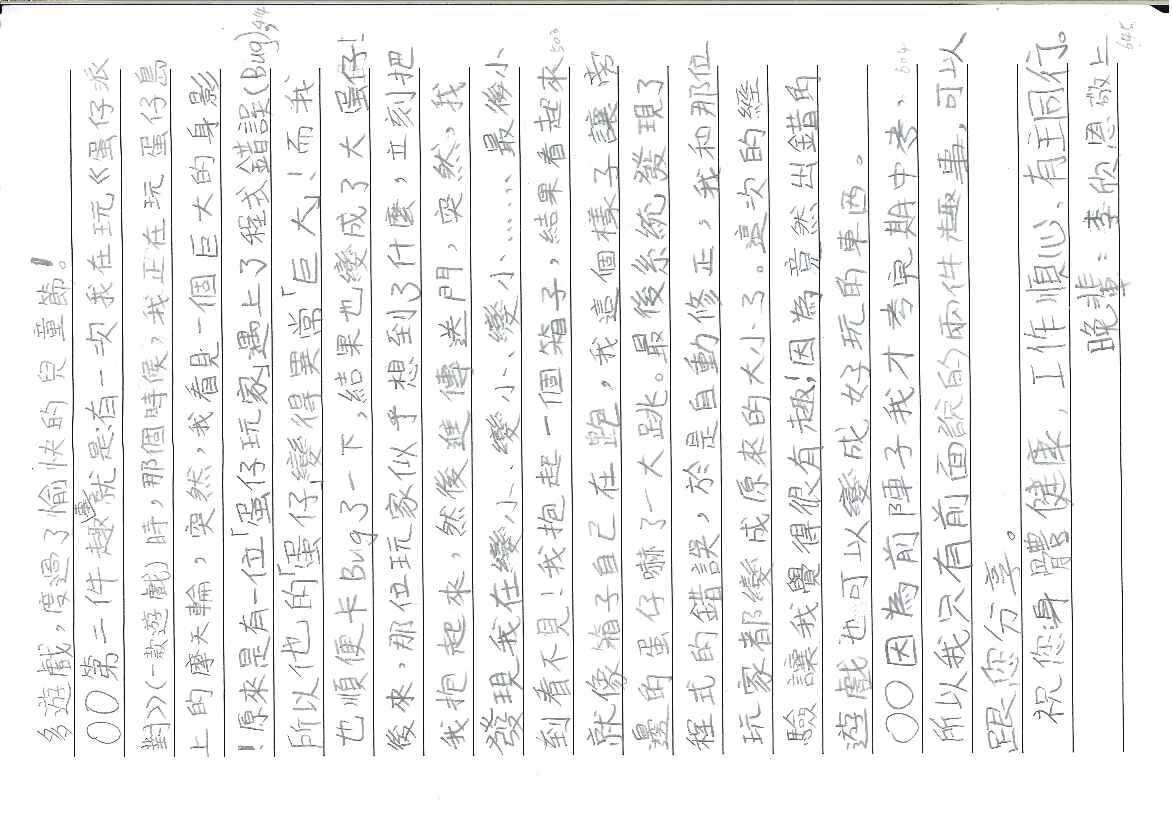 多遊戲，度過了愉快的兒童節！
○○第二件趣事就是：有一次我在玩《蛋仔派
對》(一款遊戲)時，那個時候，我正在玩蛋仔島
上的摩天輪，突然，我看見一個巨大的身影
！原來是有一位「蛋仔玩家」遇上了程式錯誤(Bug)，
所以他的「蛋仔」變得異常「巨大」！而我
也順便卡Bug了一下，結果也變成了大蛋仔！
後來，那位玩家似乎想到了什麼，立刻把
我抱起來，然後進傳送門，突然，我
發現我在變小、變小、變小……最後小
到看不見！我抱起一個箱子，結果看起來
就像箱子自己在跑，我這個樣子讓旁
邊的蛋仔嚇了一大跳。最後系統發現了
程式的錯誤，於是自動修正，我和那位
玩家都變成原來的大小了。這次的經
驗讓我覺得很有趣！因為竟然出錯的
遊戲也可以變成好玩的東西。
○○因為前陣子我才考完期中考，
所以我只有前面說的兩件趣事，可以
跟您分享。
祝您身體健康、工作順心、有主同行。
晚輩：李欣恩敬上
503
604
645